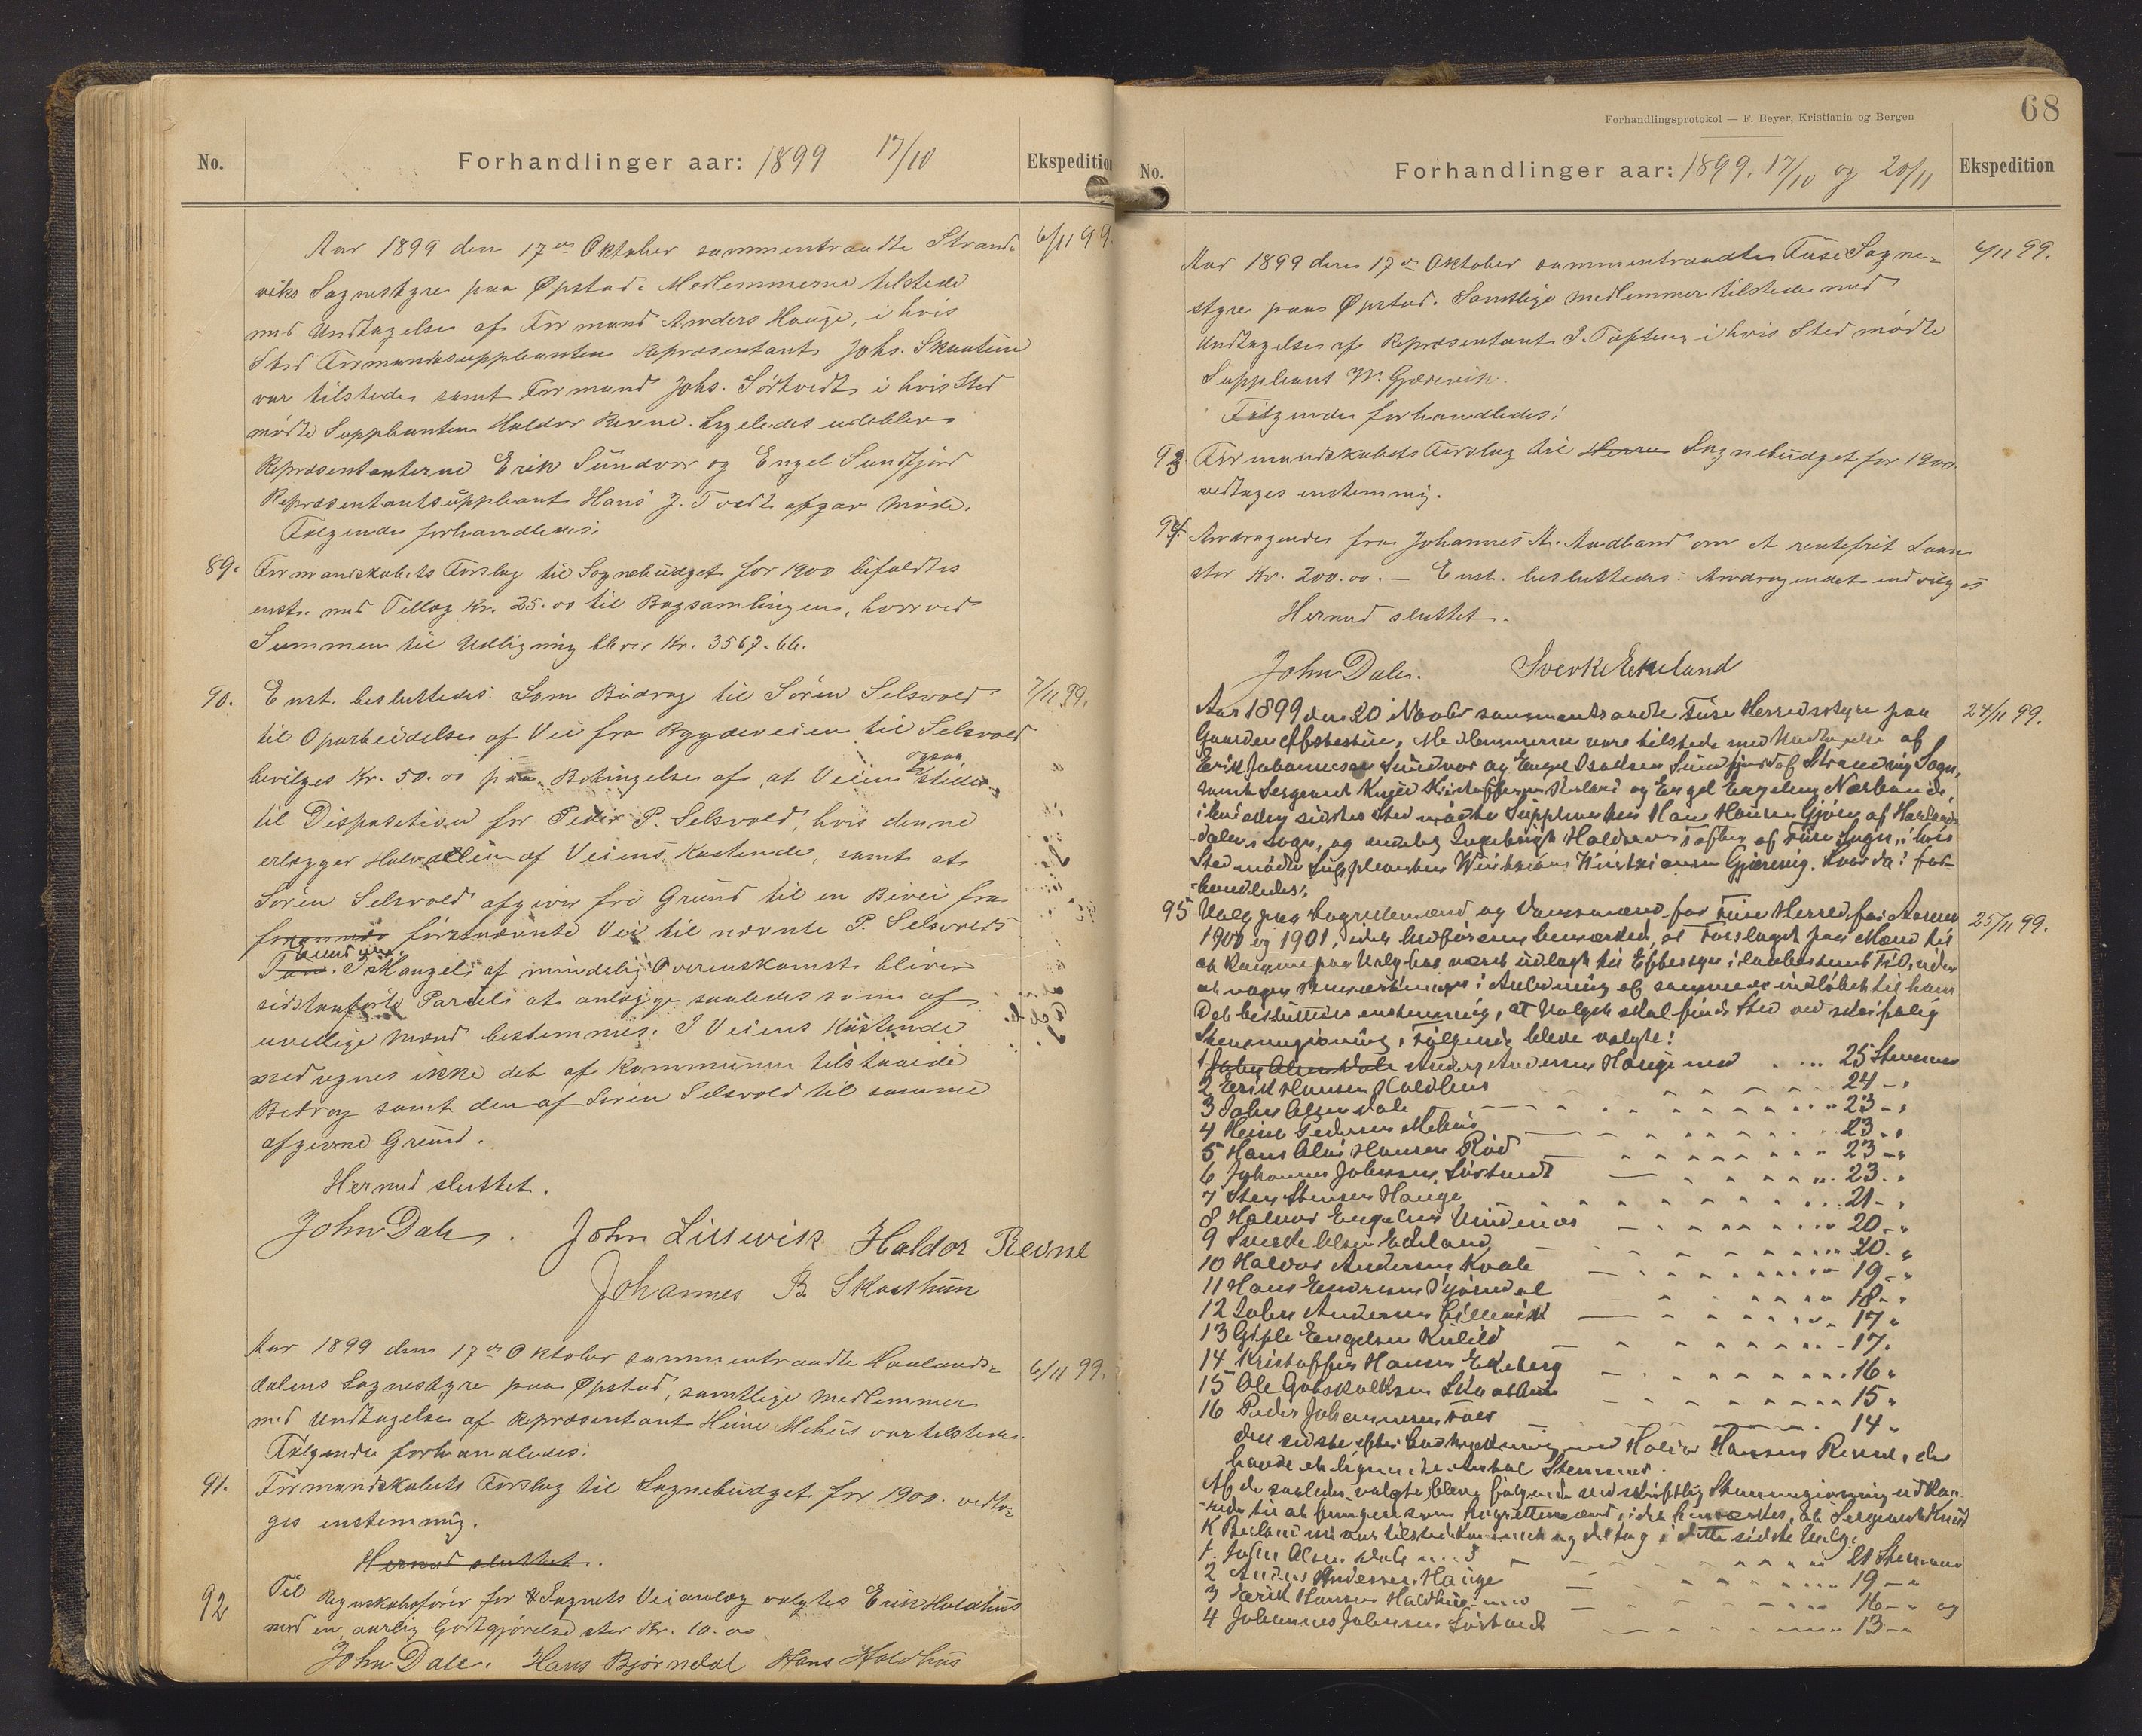 No. Forhandlinger aar: 1899 17/10 Ekspedition
Aar 1899 den 17de Oktober sammentraadte Strand-
viks Sognestyre paa Øpstad. Medlemmerne tilstede
med Undtagelse af Formand Anders Hauge, i hvis
Sted Formandssuppleanten Repræsentant Johs. Skaatun
var tilstede, samt Formand Johs. Sørtvedt, i hvis Sted
mødte Suppleanten Haldor Revne. Ligeledes udeblev
Repræsentanterne Erik Sundvor og Engel Sundfjord
Repræsentantsuppleant Hans J. Tvedt afgav møde.
Følgende forhandledes:
6/11 99.
89. Formandskabets Forslag til Sognebudget for 1900 bifaldtes
enst. med Tillæg Kr. 25.00 til Bogsamlingen, hvorved
Summen til Udligning bliver Kr. 3567.66.
90. Enst. besluttedes: Som Bidrag til Søren Selsvold
til Oparbeidelse af Vei fra Bygdeveien til Selsvold
bevilges Kr. 50.00 paa Betingelse af, at Veien ogsaa stilles
til Disposition for Peder P. Selsvold, hvis denne
erlægger Halvdelen af Veiens Kostende, samt at
Søren Selsvold afgiver fri Grund til en Bivei fra
fornævnte Vei til nævnte P. Selsvolds
I Mangel af mindelig Overenskomst bliver
sidstanførte Parcel at anlægge saaledes som af
uvillige Mænd bestemmes. I Veiens Kostende
medregnes ikke det af Kommunen tilstaaede
Bidrag samt den af Søren Selsvold til samme
afgivne Grund.
Hermed sluttet.
7/11 99.
John Dale. John Lillevik Haldor Revne
Johannes B. Skaathun
Aar 1899 den 17de Oktober sammentraadte Haalands-
dalens Sognestyre paa Øpstad, samtlige Medlemmer
med Undtagelse af Repræsentant Heine Mehus var tilstede.
Følgende forhandledes:
6/11 99.
91. Formandskabets Forslag til Sognebudget for 1900 vedta-
ges enstemmig.
Hermed sluttet.
92 Til Regnskabsfører for Sognets Veianlæg valgtes Erik Holdhus
med en aarlig Godtgjørelse stor Kr. 10.00
John Dale. Hans Bjørndal Hans Holdhus
68
Forhandlingsprotokol — F. Beyer, Kristiania og Bergen
No. Forhandlinger aar: 1899. 17/10 og 20/11 Ekspedition
Aar 1899 den 17de Oktober sammentraadte Fuse Sogne-
styre paa Øpstad. Samtlige Medlemmer tilstede med
Undtagelse af Repræsentant I. Tuften, i hvis Sted mødte
Suppleant W. Gjerevik.
Følgende forhandledes:
6/11 99.
93. Formandskabets Forslag til Sognebudget for 1900
vedtages enstemmig.
94. Andragende fra Johannes A. Aadland om et rentefrit Laan
stor Kr. 200.00. — Enst. besluttedes: Andragendet indvilges
Hermed sluttet.
John Dale. Sverke Ekeland
Aar 1899 den 20 Novbr sammentraadte Fuse Herredsstyre paa
Gaarden, Medlemmerne vare tilstede med Undtagelse af
Erik Johannessen Sundvor og Engel Isaksen Sundfjord af Strandvig Sogn,
samt Sergeant Knud Kristoffersen og Engel Engelsen
i hvis sidstes Sted mødte Suppleanten Hans Hansen af Haalands-
dalens Sogn, og endelig Ingebrigt Haldorsen Tuften af Fuse Sogn, i hvis
Sted mødte Suppleanten Gjerevig. Hvorda for-
handledes:
24/11 99.
95 Valg paa Lagrettemænd og Domsmænd for Fuse Herred for Aarene
1900 og 1901, idet bemærkes, at Forslaget paa Mænd til
at komme paa Valg har været udlagt til Eftersyn i lovbestemt Tid, uden
at nogen Bemærkninger i Anledning af samme er indløbet til ham.
Det besluttedes enstemmig, at Valget skal finde Sted ved skriftlig
Stemmegivning. Følgende bleve valgte:
25/11 99.
1 John Olsen Dale Anders Andersen Hauge med 25 Stemmer
2 Erik Hansen Holdhus 24 "
3 John Olsen Dale 23 "
4 Heine Pedersen Mehus 23 "
5 Hans Olai Hansen Rød 23 "
6 Johannes Johnsen Sørtvedt 23 "
7 Sten Stensen Hauge 21 "
8 Halvor Engelsen Vindenes 20 "
9 Sverke Olsen Ekeland 20 "
10 Haldor Andersen Kvale 19 "
11 Hans Endresen Bjørndal 18 "
12 John Andersen Lillevik 17 "
13 Giple Engelsen Kulild 17 "
14 Kristoffer Hansen Ekeberg 16 "
15 Ole Gotskalksen Skaathun 15 "
16 Peder Johannesen 14 "
den sidste efter Lodtrækning med Haldor Hansen Revne, der
havde et lignende Antal Stemmer.
Af de saaledes valgte bleve følgende ved skriftlig Stemmegivning udkaa-
rede til at fungere som Lagrettemænd, idet bemærkes, at Sergeant Knud
K nu var tilstedekommet og deltog i dette sidste Valg:
1. John Olsen Dale med 21 Stemmer
2 Anders Andersen Hauge 19 — "
3 Erik Hansen Holdhus med 16 — " og
4 Johannes Johnsen Sørtvedt 13 — "